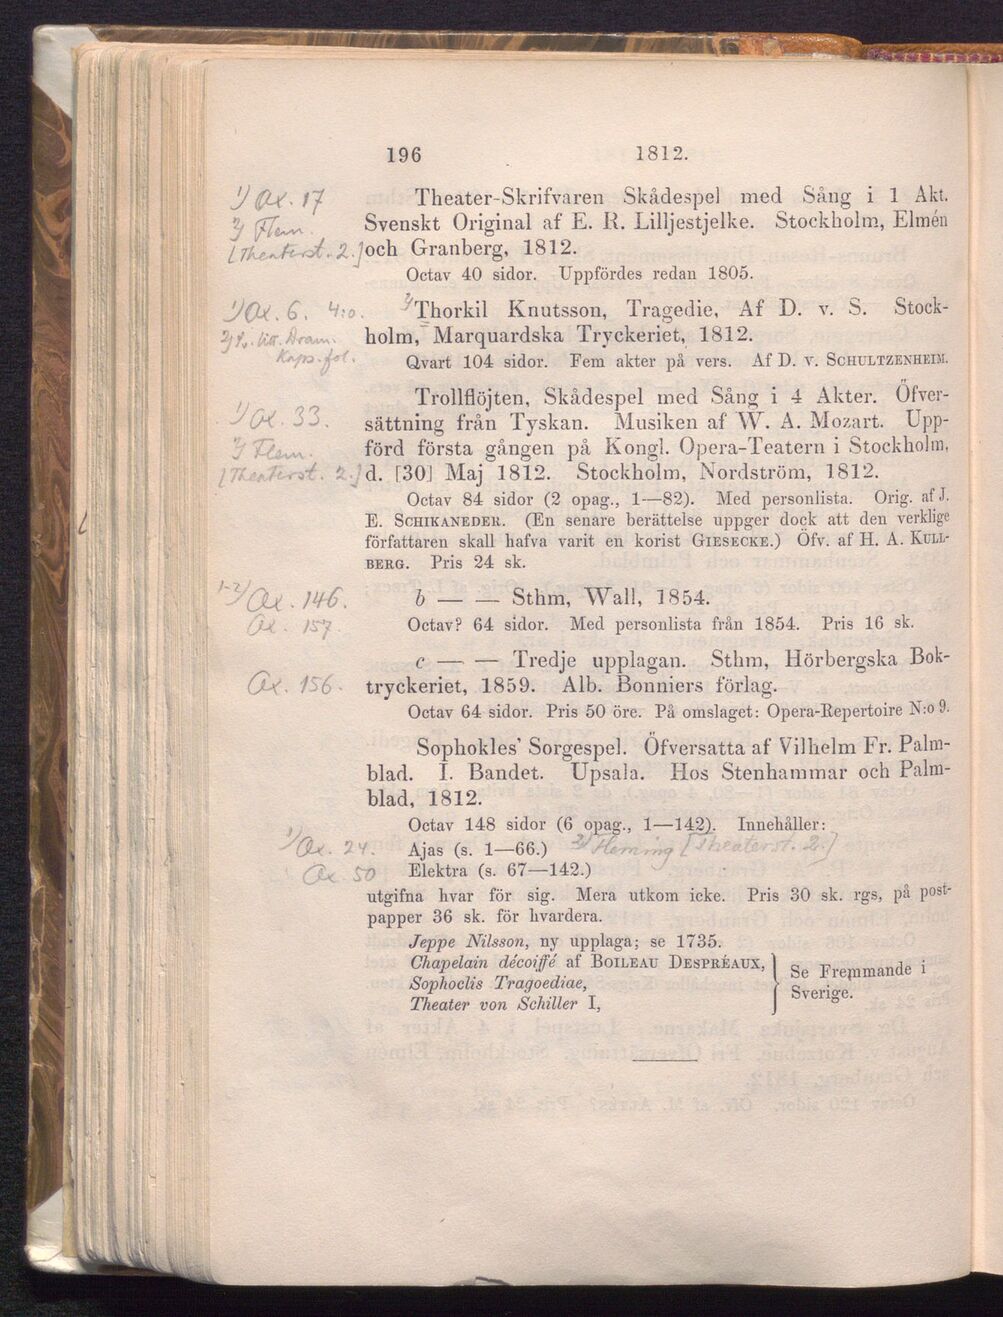 196 1812.
1) Ax. 17
2) Flem.
[Theaterst. 2.]
Theater-Skrifvaren Skådespel med Sång i 1 Akt.
Svenskt Original af E. R. Lilljestjelke. Stockholm, Elmén
och Granberg, 1812.
Octav 40 sidor. Uppfördes redan 1805.
1) Ax. 6. 4:o.
Kaps. fol.
Thorkil Knutsson, Tragedie, Af D. v. S. Stock-
holm, Marquardska Tryckeriet, 1812.
Qvart 104 sidor. Fem akter på vers. Af D. v. Schultzenheim.
1) Ax. 33.
2) Flem.
[Theaterst. 2.]
Trollflöjten, Skådespel med Sång i 4 Akter. Öfver-
sättning från Tyskan. Musiken af W. A. Mozart. Upp-
förd första gången på Kongl. Opera-Teatern i Stockholm,
d. [30] Maj 1812. Stockholm, Nordström, 1812.
Octav 84 sidor (2 opag., 1—82). Med personlista. Orig. af J.
E. Schikaneder. (En senare berättelse uppger dock att den verklige
författaren skall hafva varit en korist Giesecke.) Öfv. af H. A. Kull-
berg. Pris 24 sk.
1-2) Ax. 146.
Ax. 157
b — — Sthm, Wall, 1854.
Octav? 64 sidor. Med personlista från 1854. Pris 16 sk.
Ax. 156.
c — — Tredje upplagan. Sthm, Hörbergska Bok-
tryckeriet, 1859. Alb. Bonniers förlag.
Octav 64 sidor. Pris 50 öre. På omslaget: Opera-Repertoire N:o 9.
Sophokles' Sorgespel. Öfversatta af Vilhelm Fr. Palm-
blad. I. Bandet. Upsala. Hos Stenhammar och Palm-
blad, 1812.
Octav 148 sidor (6 opag., 1—142). Innehåller:
1) Ax. 24. Ajas (s. 1—66.) 2) Fleming [Theaterst. 2.]
Ax. 50 Elektra (s. 67—142.)
utgifna hvar för sig. Mera utkom icke. Pris 30 sk. rgs, på post-
papper 36 sk. för hvardera.
Jeppe Nilsson, ny upplaga; se 1735.
Chapelain décoiffé af Boileau Despréaux,
Sophoclis Tragoediae,
Theater von Schiller I,
Se Fremmande i
Sverige.